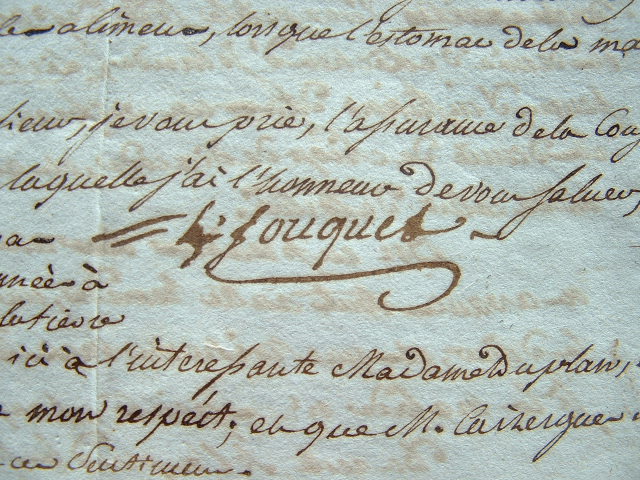 alimens, lorsque l'estomac de la
sieur, je vous prie, l'assurance de la
laquelle j'ai l'honneur de vous saluer,
fouquet
née à
ici à l'interessante Madame Duplan,
mon respéct; et que M.
ce Sentimens.